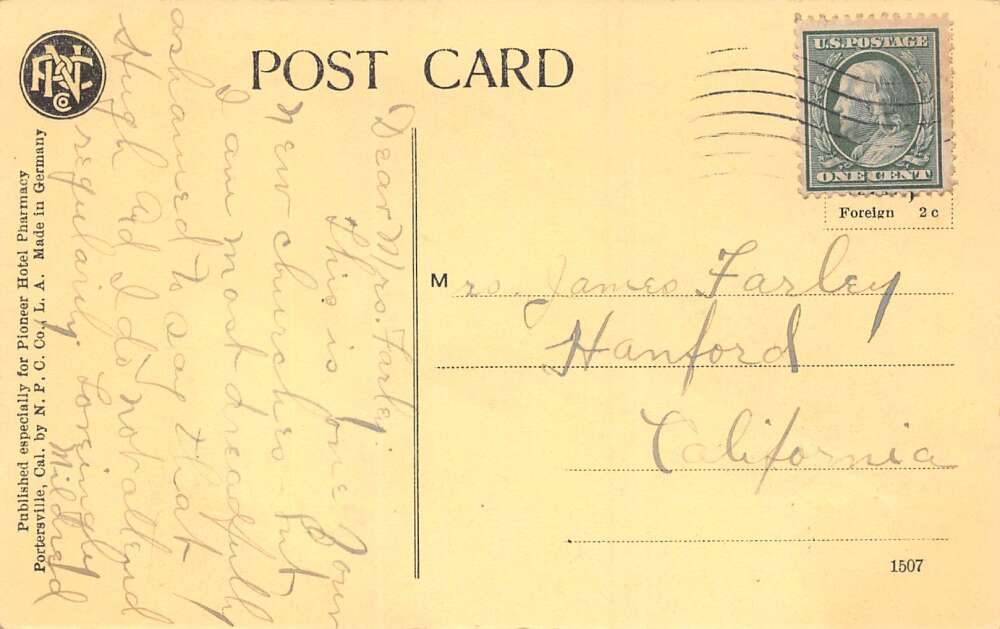 POST CARD
U.S. POSTAGE
ONE CENT
Foreign 2c
Dear Mrs. Farley.
This is one of our
new churches but
I am most dreadfully
ashamed to say that
Hugh and I do not attend
regularly. Lovingly
Mildred
Mrs. James Farley
Hanford
California
1507
Published especially for Pioneer Hotel Pharmacy
Portersville, Cal. by N. P. C. Co., L. A. Made in Germany